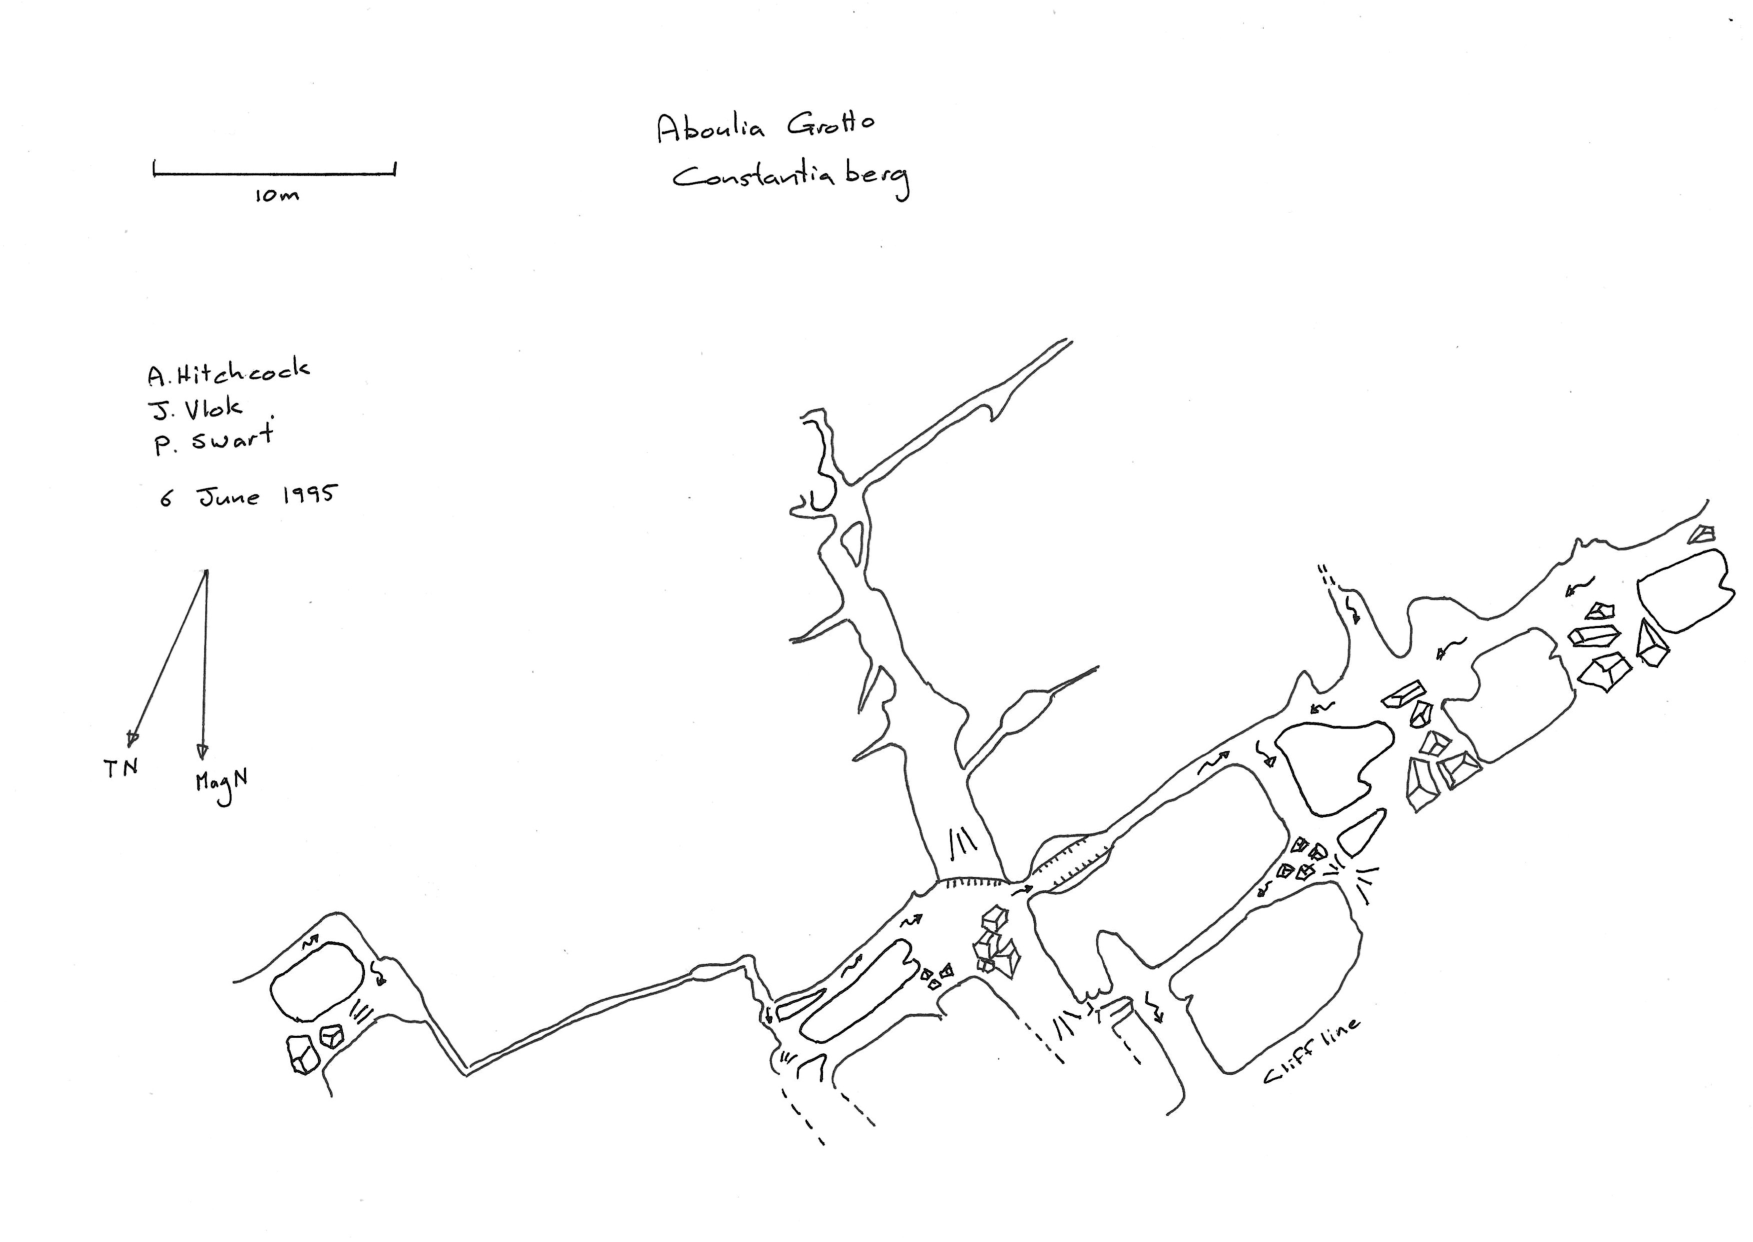 Aboulia Grotto
Constantiaberg
10m
A. Hitchcock
J. Vlok
P. Swart
6 June 1995
TN
MagN
Cliff line